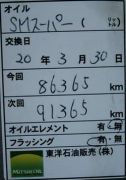 オイル
SMスーパー (リットル)
交換日
20年 3月 30日
今回
86365 km
次回
91365 km
オイルエレメント 有・無
フラッシング 有・無
東洋石油販売(株)
MITSUI OIL